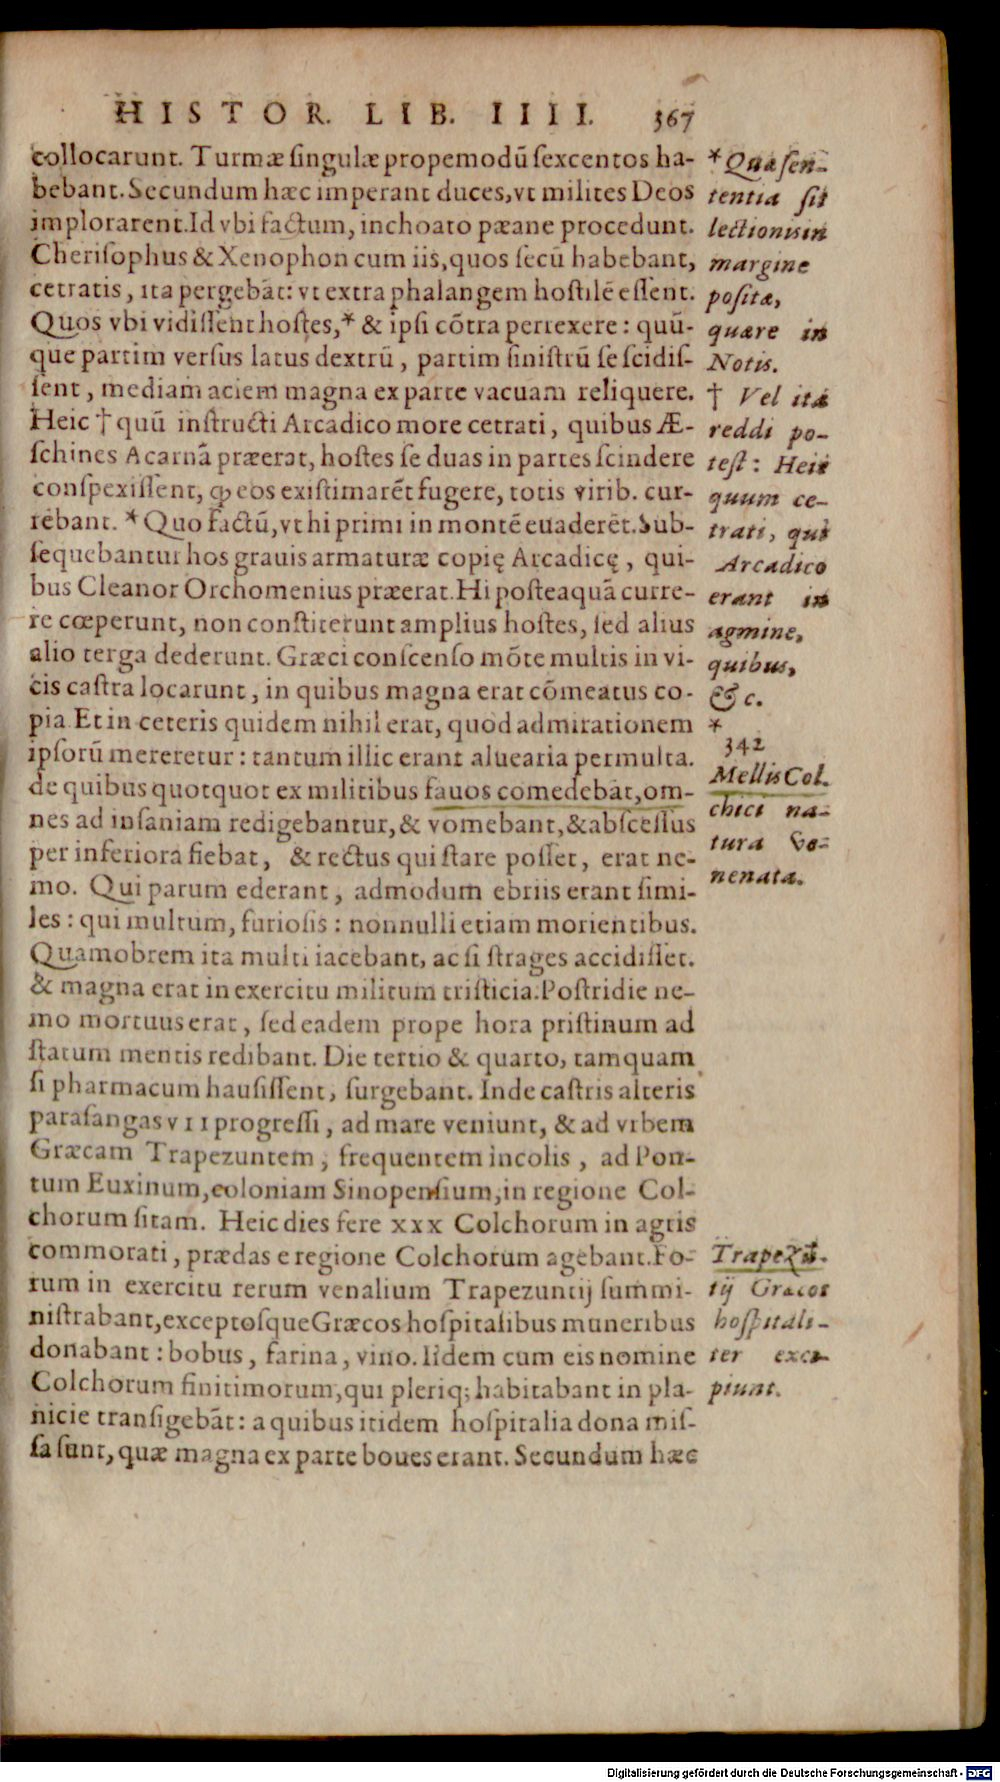 HISTOR. LIB. IIII. 367
collocarunt. Turmæ ſingulæ propemodũ ſexcentos ha-
bebant. Secundum hæc imperant duces, vt milites Deos
implorarent. Id vbi factum, inchoato pæane procedunt.
Cheriſophus & Xenophon cum iis, quos ſecũ habebant,
cetratis, ita pergebāt: vt extra phalangem hoſtilē eſſent.
Quos vbi vidiſſent hoſtes, * & ipſi cōtra perrexere: quũ-
que partim verſus latus dextrũ, partim ſiniſtrũ ſe ſcidiſ-
ſent, mediam aciem magna ex parte vacuam reliquere.
Heic † quũ inſtructi Arcadico more cetrati, quibus Æ-
ſchines Acarnā præerat, hoſtes ſe duas in partes ſcindere
conſpexiſſent, ꝙ eos exiſtimarēt fugere, totis virib. cur-
rebant. * Quo factũ, vt hi primi in montē euaderēt. Sub-
ſequebantur hos grauis armaturæ copię Arcadicę, qui-
bus Cleanor Orchomenius præerat. Hi poſteaquā curre-
re cœperunt, non conſtiterunt amplius hoſtes, ſed alius
alio terga dederunt. Græci conſcenſo mōte multis in vi-
cis caſtra locarunt, in quibus magna erat cōmeatus co-
pia. Et in ceteris quidem nihil erat, quod admirationem
ipſorũ mereretur: tantum illic erant aluearia permulta.
de quibus quotquot ex militibus fauos comedebāt, om-
nes ad inſaniam redigebantur, & vomebant, & abſceſſus
per inferiora fiebat, & rectus qui ſtare poſſet, erat ne-
mo. Qui parum ederant, admodum ebriis erant ſimi-
les: qui multum, furioſis: nonnulli etiam morientibus.
Quamobrem ita multi iacebant, ac ſi ſtrages accidiſſet.
& magna erat in exercitu militum triſticia. Poſtridie ne-
mo mortuus erat, ſed eadem prope hora priſtinum ad
ſtatum mentis redibant. Die tertio & quarto, tamquam
ſi pharmacum hauſiſſent, ſurgebant. Inde caſtris alteris
paraſangas VII progreſſi, ad mare veniunt, & ad vrbem
Græcam Trapezuntem, frequentem incolis, ad Pon-
tum Euxinum, coloniam Sinopenſium, in regione Col-
chorum ſitam. Heic dies fere XXX Colchorum in agris
commorati, prædas e regione Colchorum agebant. Fo-
rum in exercitu rerum venalium Trapezuntij ſummi-
niſtrabant, exceptoſque Græcos hoſpitalibus muneribus
donabant: bobus, farina, vino. Iidem cum eis nomine
Colchorum finitimorum, qui pleriq; habitabant in pla-
nicie tranſigebāt: a quibus itidem hoſpitalia dona miſ-
ſa ſunt, quæ magna ex parte boues erant. Secundum hæc
* Quæ ſen-
tentia ſit
lectionis in
margine
poſitæ,
quære in
Notis.
† Vel ita
reddi po-
teſt: Heic
quum ce-
trati, qui
Arcadico
erant in
agmine,
quibus,
&c.
*
342
Mellis Col-
chici na-
tura ve-
nenata.
Trapezũ-
tij Græcos
hoſpitali-
ter exci-
piunt.
Digitalisierung gefördert durch die Deutsche Forschungsgemeinschaft - DFG